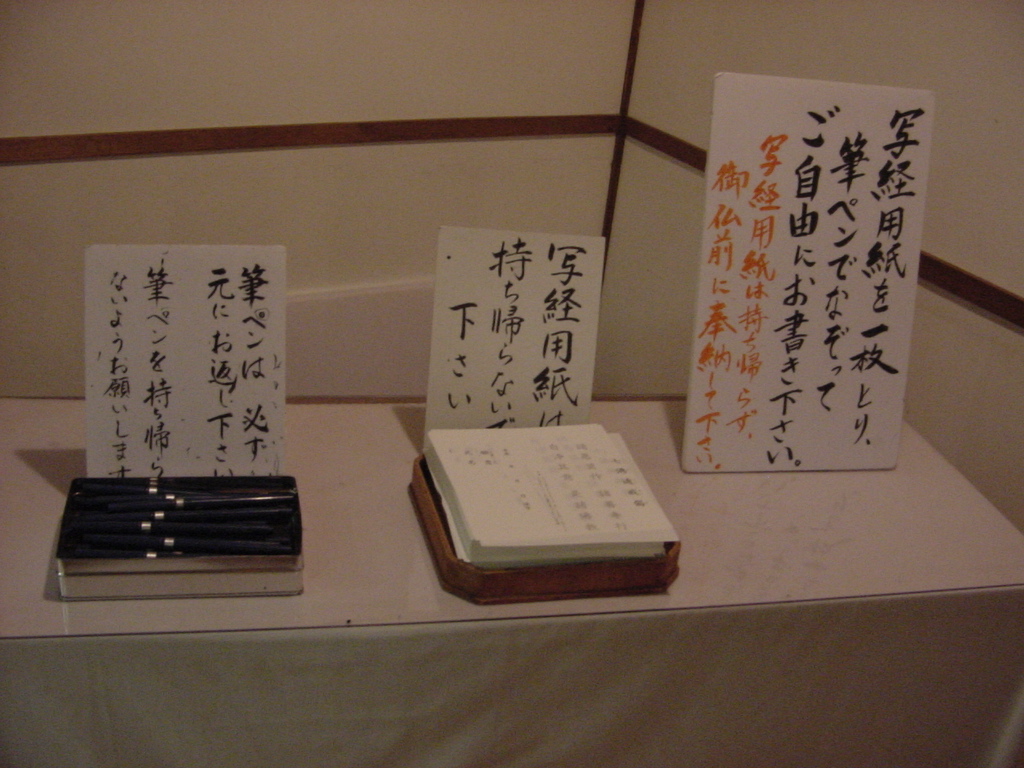 写経用紙を一枚とり、
筆ペンでなぞって
ご自由にお書き下さい。
写経用紙は持ち帰らず、
御仏前に奉納して下さい。
写経用紙は
持ち帰らないで
下さい
筆ペンは必ず
元にお返し下さい
筆ペンを持ち帰ら
ないようお願いします